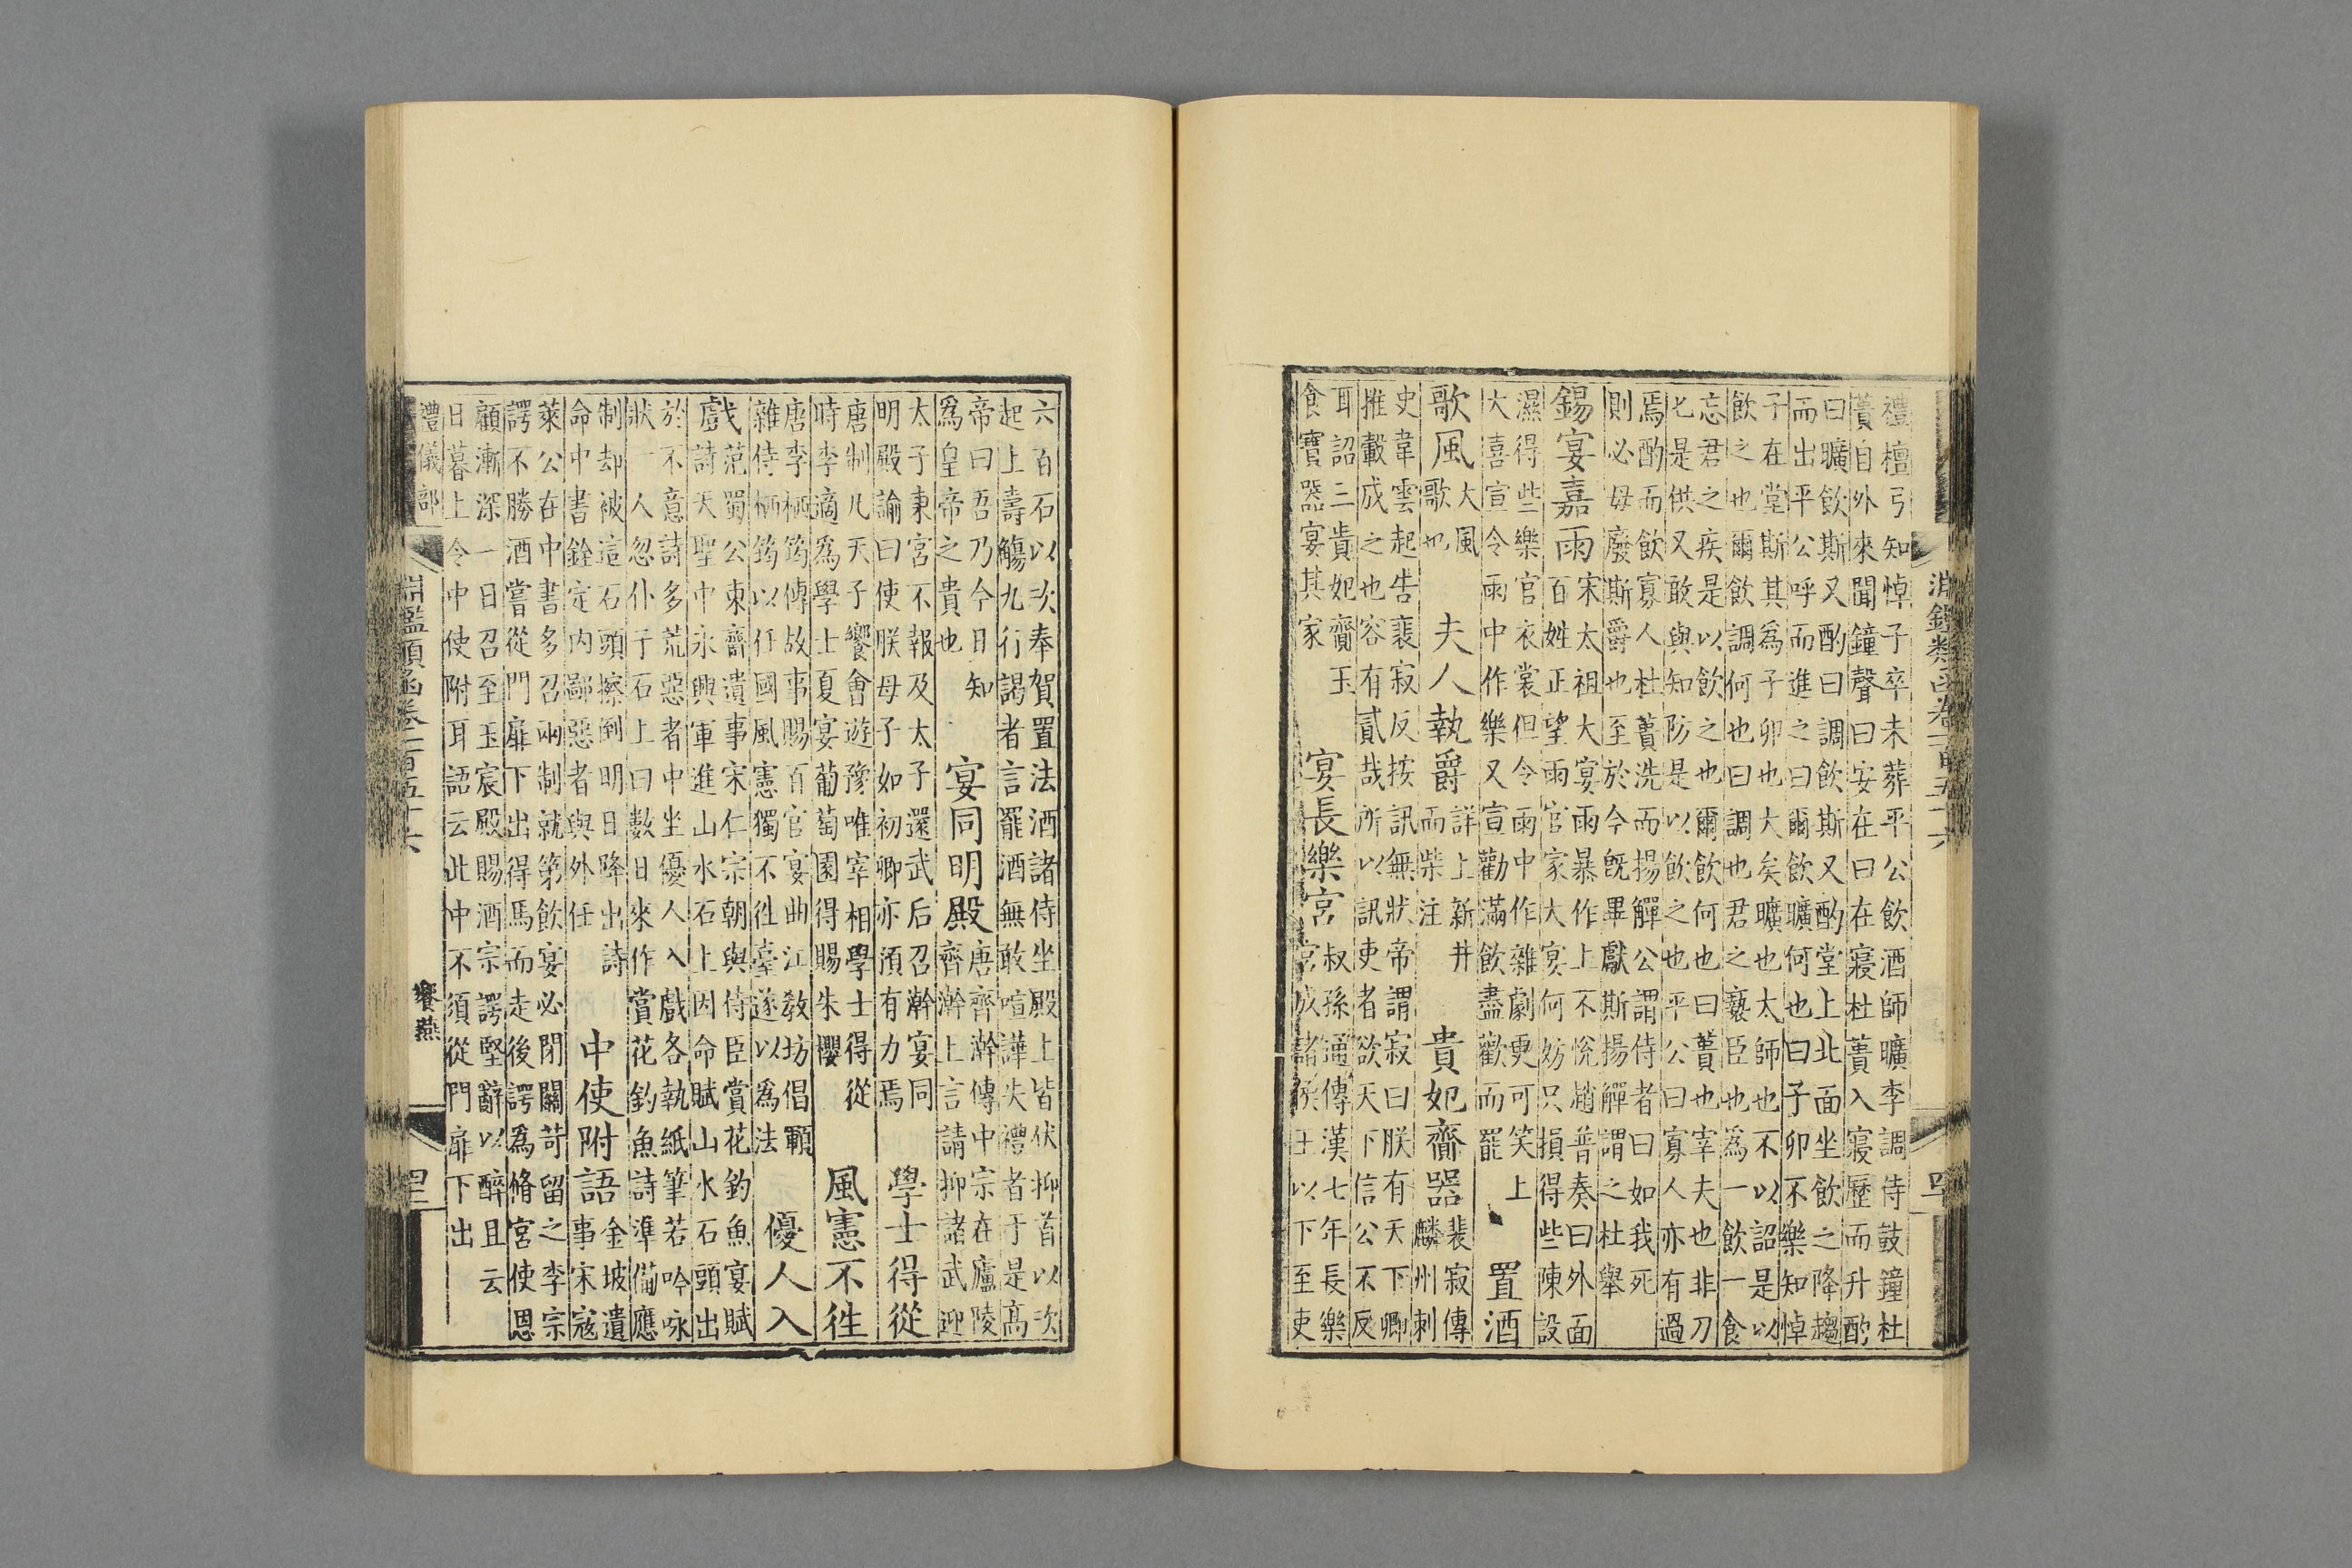 淵鑑類函卷一百五十六
禮檀弓知悼子卒未葬平公飲酒師曠李調侍鼓鐘杜
蕢自外來聞鐘聲曰安在曰在寢杜蕢入寢歷而升酌
曰曠飲斯又酌曰調飲斯又酌堂上北面坐飲之降趨
而出平公呼而進之曰爾飲曠何也曰子卯不樂知悼
子在堂斯其爲子卯也大矣曠也太師也不以詔是以
飲之也爾飲調何也曰調也君之褻臣也爲一飲一食
忘君之疾是以飲之也爾飲何也曰蕢也宰夫也非刀
匕是供又敢與知防是以飲之也平公曰寡人亦有過
焉酌而飲寡人杜蕢洗而揚觶公謂侍者曰如我死
則必毋廢斯爵也至於今旣畢獻斯揚觶謂之杜舉
錫宴嘉雨
宋太祖大宴雨暴作上不悅趙普奏曰外面
百姓正望雨官家大宴何妨只損得些陳設
濕得些樂官衣裳但令雨中作雜劇更可笑上
大喜宣令雨中作樂又宣勸滿飲盡歡而罷
置酒
歌風
大風
歌也
夫人執爵
詳上新井
而柴注
貴妃齎器
裴寂傳
麟州刺
史韋雲起告裴寂反按訊無狀帝謂寂曰朕有天下卿
推轂成之也容有貳哉所以訊吏者欲天下信公不反
耳詔三貴妃齎玉
食寶器宴其家
宴長樂宮
叔孫通傳漢七年長樂
宮成諸侯王以下至吏
六百石以次奉賀置法酒諸侍坐殿上皆伏抑首以次
起上壽觴九行謁者言罷酒無敢喧譁失禮者于是高
帝曰吾乃今日知
爲皇帝之貴也
宴同明殿
唐齊澣傳中宗在廬陵
齊澣上言請抑諸武迎
太子東宮不報及太子還武后召澣宴同
明殿諭曰使朕母子如初卿亦預有力焉
學士得從
唐制凡天子饗會遊豫唯宰相學士得從
時李適爲學士夏宴葡萄園得賜朱櫻
風憲不徃
唐李栖筠傳故事賜百官宴曲江教坊倡顐
雜侍栖筠以任國風憲獨不徃臺遂以爲法
優人入
戲
范蜀公東齋遺事宋仁宗朝與侍臣賞花釣魚宴賦
詩天聖中永興軍進山水石上因命賦山水石頭出
於不意詩多荒惡者中坐優人入戲各執紙筆若吟咏
狀一人忽仆于石上曰數日來作賞花釣魚詩準備應
制却被這石頭擦倒明日降出詩
命中書銓定内鄙惡者與外任
中使附語
金坡遺
事宋寇
萊公在中書多召兩制就第飲宴必閉關苛留之李宗
諤不勝酒嘗從門扉下出得馬而走後諤爲脩宮使恩
顧漸深一日召至玉宸殿賜酒宗諤堅辭以醉且云
日暮上令中使附耳語云此中不須從門扉下出
禮儀部
淵鑑類函卷一百五十六
饗燕